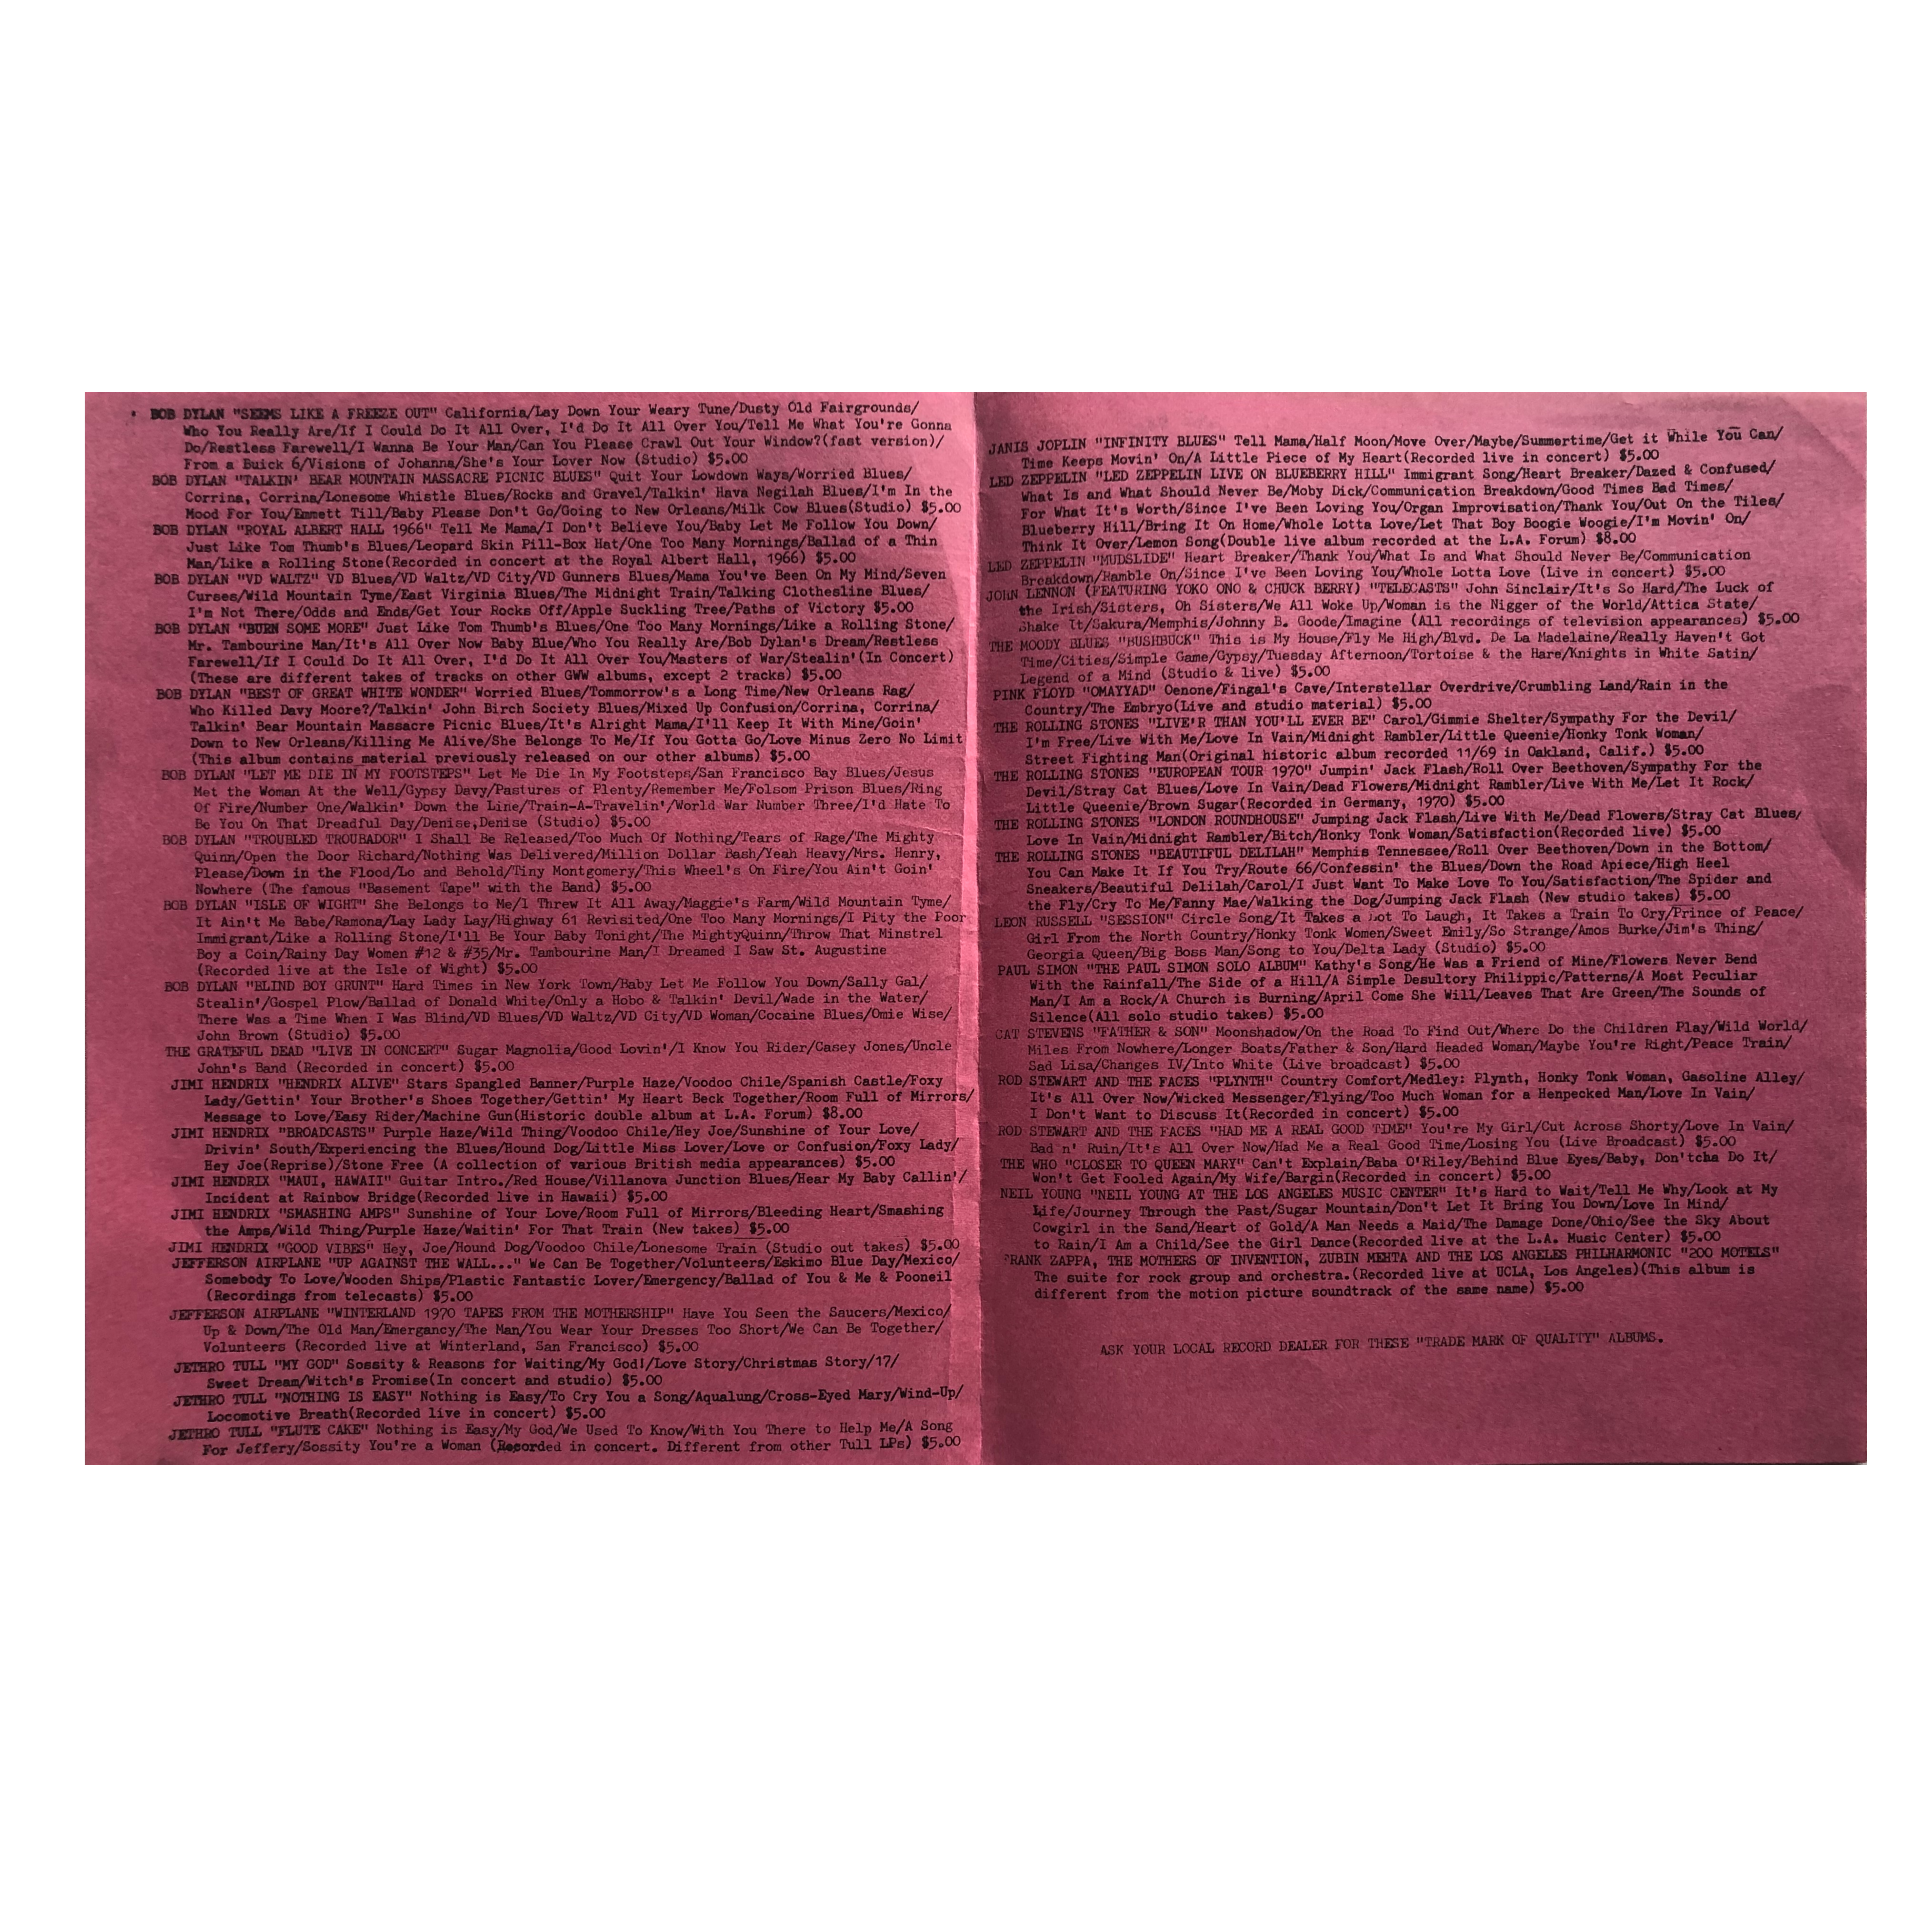 BOB DYLAN "SEEMS LIKE A FREEZE OUT" California/Lay Down Your Weary Tune/Dusty Old Fairgrounds/
Who You Really Are/If I Could Do It All Over, I'd Do It All Over You/Tell Me What You're Gonna
Do/Restless Farewell/I Wanna Be Your Man/Can You Please Crawl Out Your Window?(fast version)/
From a Buick 6/Visions of Johanna/She's Your Lover Now (Studio) $5.00
BOB DYLAN "TALKIN' BEAR MOUNTAIN MASSACRE PICNIC BLUES" Quit Your Lowdown Ways/Worried Blues/
Corrina, Corrina/Lonesome Whistle Blues/Rocks and Gravel/Talkin' Hava Negilah Blues/I'm In the
Mood For You/Emmett Till/Baby Please Don't Go/Going to New Orleans/Milk Cow Blues(Studio) $5.00
BOB DYLAN "ROYAL ALBERT HALL 1966" Tell Me Mama/I Don't Believe You/Baby Let Me Follow You Down/
Just Like Tom Thumb's Blues/Leopard Skin Pill-Box Hat/One Too Many Mornings/Ballad of a Thin
Man/Like a Rolling Stone(Recorded in concert at the Royal Albert Hall, 1966) $5.00
BOB DYLAN "VD WALTZ" VD Blues/VD Waltz/VD City/VD Gunners Blues/Mama You've Been On My Mind/Seven
Curses/Wild Mountain Tyme/East Virginia Blues/The Midnight Train/Talking Clothesline Blues/
I'm Not There/Odds and Ends/Get Your Rocks Off/Apple Suckling Tree/Paths of Victory $5.00
BOB DYLAN "BURN SOME MORE" Just Like Tom Thumb's Blues/One Too Many Mornings/Like a Rolling Stone/
Mr. Tambourine Man/It's All Over Now Baby Blue/Who You Really Are/Bob Dylan's Dream/Restless
Farewell/If I Could Do It All Over, I'd Do It All Over You/Masters of War/Stealin'(In Concert)
(These are different takes of tracks on other GWW albums, except 2 tracks) $5.00
BOB DYLAN "BEST OF GREAT WHITE WONDER" Worried Blues/Tommorrow's a Long Time/New Orleans Rag/
Who Killed Davy Moore?/Talkin' John Birch Society Blues/Mixed Up Confusion/Corrina, Corrina/
Talkin' Bear Mountain Massacre Picnic Blues/It's Alright Mama/I'll Keep It With Mine/Goin'
Down to New Orleans/Killing Me Alive/She Belongs To Me/If You Gotta Go/Love Minus Zero No Limit
(This album contains material previously released on our other albums) $5.00
BOB DYLAN "LET ME DIE IN MY FOOTSTEPS" Let Me Die In My Footsteps/San Francisco Bay Blues/Jesus
Met the Woman At the Well/Gypsy Davy/Pastures of Plenty/Remember Me/Folsom Prison Blues/Ring
Of Fire/Number One/Walkin' Down the Line/Train-A-Travelin'/World War Number Three/I'd Hate To
Be You On That Dreadful Day/Denise,Denise (Studio) $5.00
BOB DYLAN "TROUBLED TROUBADOR" I Shall Be Released/Too Much Of Nothing/Tears of Rage/The Mighty
Quinn/Open the Door Richard/Nothing Was Delivered/Million Dollar Bash/Yeah Heavy/Mrs. Henry,
Please/Down in the Flood/Lo and Behold/Tiny Montgomery/This Wheel's On Fire/You Ain't Goin'
Nowhere (The famous "Basement Tape" with the Band) $5.00
BOB DYLAN "ISLE OF WIGHT" She Belongs to Me/I Threw It All Away/Maggie's Farm/Wild Mountain Tyme/
It Ain't Me Babe/Ramona/Lay Lady Lay/Highway 61 Revisited/One Too Many Mornings/I Pity the Poor
Immigrant/Like a Rolling Stone/I'll Be Your Baby Tonight/The MightyQuinn/Throw That Minstrel
Boy a Coin/Rainy Day Women #12 & #35/Mr. Tambourine Man/I Dreamed I Saw St. Augustine
(Recorded live at the Isle of Wight) $5.00
BOB DYLAN "BLIND BOY GRUNT" Hard Times in New York Town/Baby Let Me Follow You Down/Sally Gal/
Stealin'/Gospel Plow/Ballad of Donald White/Only a Hobo & Talkin' Devil/Wade in the Water/
There Was a Time When I Was Blind/VD Blues/VD Waltz/VD City/VD Woman/Cocaine Blues/Omie Wise/
John Brown (Studio) $5.00
THE GRATEFUL DEAD "LIVE IN CONCERT" Sugar Magnolia/Good Lovin'/I Know You Rider/Casey Jones/Uncle
John's Band (Recorded in concert) $5.00
JIMI HENDRIX "HENDRIX ALIVE" Stars Spangled Banner/Purple Haze/Voodoo Chile/Spanish Castle/Foxy
Lady/Gettin' Your Brother's Shoes Together/Gettin' My Heart Beck Together/Room Full of Mirrors/
Message to Love/Easy Rider/Machine Gun(Historic double album at L.A. Forum) $8.00
JIMI HENDRIX "BROADCASTS" Purple Haze/Wild Thing/Voodoo Chile/Hey Joe/Sunshine of Your Love/
Drivin' South/Experiencing the Blues/Hound Dog/Little Miss Lover/Love or Confusion/Foxy Lady/
Hey Joe(Reprise)/Stone Free (A collection of various British media appearances) $5.00
JIMI HENDRIX "MAUI, HAWAII" Guitar Intro./Red House/Villanova Junction Blues/Hear My Baby Callin'/
Incident at Rainbow Bridge(Recorded live in Hawaii) $5.00
JIMI HENDRIX "SMASHING AMPS" Sunshine of Your Love/Room Full of Mirrors/Bleeding Heart/Smashing
the Amps/Wild Thing/Purple Haze/Waitin' For That Train (New takes) $5.00
JIMI HENDRIX "GOOD VIBES" Hey, Joe/Hound Dog/Voodoo Chile/Lonesome Train (Studio out takes) $5.00
JEFFERSON AIRPLANE "UP AGAINST THE WALL..." We Can Be Together/Volunteers/Eskimo Blue Day/Mexico/
Somebody To Love/Wooden Ships/Plastic Fantastic Lover/Emergency/Ballad of You & Me & Pooneil
(Recordings from telecasts) $5.00
JEFFERSON AIRPLANE "WINTERLAND 1970 TAPES FROM THE MOTHERSHIP" Have You Seen the Saucers/Mexico/
Up & Down/The Old Man/Emergancy/The Man/You Wear Your Dresses Too Short/We Can Be Together/
Volunteers (Recorded live at Winterland, San Francisco) $5.00
JETHRO TULL "MY GOD" Sossity & Reasons for Waiting/My God!/Love Story/Christmas Story/17/
Sweet Dream/Witch's Promise(In concert and studio) $5.00
JETHRO TULL "NOTHING IS EASY" Nothing is Easy/To Cry You a Song/Aqualung/Cross-Eyed Mary/Wind-Up/
Locomotive Breath(Recorded live in concert) $5.00
JETHRO TULL "FLUTE CAKE" Nothing is Easy/My God/We Used To Know/With You There to Help Me/A Song
For Jeffery/Sossity You're a Woman (Recorded in concert. Different from other Tull LPs) $5.00
JANIS JOPLIN "INFINITY BLUES" Tell Mama/Half Moon/Move Over/Maybe/Summertime/Get it While You Can/
Time Keeps Movin' On/A Little Piece of My Heart(Recorded live in concert) $5.00
LED ZEPPELIN "LED ZEPPELIN LIVE ON BLUEBERRY HILL" Immigrant Song/Heart Breaker/Dazed & Confused/
What Is and What Should Never Be/Moby Dick/Communication Breakdown/Good Times Bad Times/
For What It's Worth/Since I've Been Loving You/Organ Improvisation/Thank You/Out On the Tiles/
Blueberry Hill/Bring It On Home/Whole Lotta Love/Let That Boy Boogie Woogie/I'm Movin' On/
Think It Over/Lemon Song(Double live album recorded at the L.A. Forum) $8.00
LED ZEPPELIN "MUDSLIDE" Heart Breaker/Thank You/What Is and What Should Never Be/Communication
Breakdown/Ramble On/Since I've Been Loving You/Whole Lotta Love (Live in concert) $5.00
JOHN LENNON (FEATURING YOKO ONO & CHUCK BERRY) "TELECASTS" John Sinclair/It's So Hard/The Luck of
the Irish/Sisters, Oh Sisters/We All Woke Up/Woman is the Nigger of the World/Attica State/
Shake It/Sakura/Memphis/Johnny B. Goode/Imagine (All recordings of television appearances) $5.00
THE MOODY BLUES "BUSHBUCK" This is My House/Fly Me High/Blvd. De La Madelaine/Really Haven't Got
Time/Cities/Simple Game/Gypsy/Tuesday Afternoon/Tortoise & the Hare/Knights in White Satin/
Legend of a Mind (Studio & live) $5.00
PINK FLOYD "OMAYYAD" Oenone/Fingal's Cave/Interstellar Overdrive/Crumbling Land/Rain in the
Country/The Embryo(Live and studio material) $5.00
THE ROLLING STONES "LIVE'R THAN YOU'LL EVER BE" Carol/Gimmie Shelter/Sympathy For the Devil/
I'm Free/Live With Me/Love In Vain/Midnight Rambler/Little Queenie/Honky Tonk Woman/
Street Fighting Man(Original historic album recorded 11/69 in Oakland, Calif.) $5.00
THE ROLLING STONES "EUROPEAN TOUR 1970" Jumpin' Jack Flash/Roll Over Beethoven/Sympathy For the
Devil/Stray Cat Blues/Love In Vain/Dead Flowers/Midnight Rambler/Live With Me/Let It Rock/
Little Queenie/Brown Sugar(Recorded in Germany, 1970) $5.00
THE ROLLING STONES "LONDON ROUNDHOUSE" Jumping Jack Flash/Live With Me/Dead Flowers/Stray Cat Blues/
Love In Vain/Midnight Rambler/Bitch/Honky Tonk Woman/Satisfaction(Recorded live) $5.00
THE ROLLING STONES "BEAUTIFUL DELILAH" Memphis Tennessee/Roll Over Beethoven/Down in the Bottom/
You Can Make It If You Try/Route 66/Confessin' the Blues/Down the Road Apiece/High Heel
Sneakers/Beautiful Delilah/Carol/I Just Want To Make Love To You/Satisfaction/The Spider and
the Fly/Cry To Me/Fanny Mae/Walking the Dog/Jumping Jack Flash (New studio takes) $5.00
LEON RUSSELL "SESSION" Circle Song/It Takes a Lot To Laugh, It Takes a Train To Cry/Prince of Peace/
Girl From the North Country/Honky Tonk Women/Sweet Emily/So Strange/Amos Burke/Jim's Thing/
Georgia Queen/Big Boss Man/Song to You/Delta Lady (Studio) $5.00
PAUL SIMON "THE PAUL SIMON SOLO ALBUM" Kathy's Song/He Was a Friend of Mine/Flowers Never Bend
With the Rainfall/The Side of a Hill/A Simple Desultory Philippic/Patterns/A Most Peculiar
Man/I Am a Rock/A Church is Burning/April Come She Will/Leaves That Are Green/The Sounds of
Silence(All solo studio takes) $5.00
CAT STEVENS "FATHER & SON" Moonshadow/On the Road To Find Out/Where Do the Children Play/Wild World/
Miles From Nowhere/Longer Boats/Father & Son/Hard Headed Woman/Maybe You're Right/Peace Train/
Sad Lisa/Changes IV/Into White (Live broadcast) $5.00
ROD STEWART AND THE FACES "PLYNTH" Country Comfort/Medley: Plynth, Honky Tonk Woman, Gasoline Alley/
It's All Over Now/Wicked Messenger/Flying/Too Much Woman for a Henpecked Man/Love In Vain/
I Don't Want to Discuss It(Recorded in concert) $5.00
ROD STEWART AND THE FACES "HAD ME A REAL GOOD TIME" You're My Girl/Cut Across Shorty/Love In Vain/
Bad n' Ruin/It's All Over Now/Had Me a Real Good Time/Losing You (Live Broadcast) $5.00
THE WHO "CLOSER TO QUEEN MARY" Can't Explain/Baba O'Riley/Behind Blue Eyes/Baby, Don'tcha Do It/
Won't Get Fooled Again/My Wife/Bargin(Recorded in concert) $5.00
NEIL YOUNG "NEIL YOUNG AT THE LOS ANGELES MUSIC CENTER" It's Hard to Wait/Tell Me Why/Look at My
Life/Journey Through the Past/Sugar Mountain/Don't Let It Bring You Down/Love In Mind/
Cowgirl in the Sand/Heart of Gold/A Man Needs a Maid/The Damage Done/Ohio/See the Sky About
to Rain/I Am a Child/See the Girl Dance(Recorded live at the L.A. Music Center) $5.00
FRANK ZAPPA, THE MOTHERS OF INVENTION, ZUBIN MEHTA AND THE LOS ANGELES PHILHARMONIC "200 MOTELS"
The suite for rock group and orchestra.(Recorded live at UCLA, Los Angeles)(This album is
different from the motion picture soundtrack of the same name) $5.00
ASK YOUR LOCAL RECORD DEALER FOR THESE "TRADE MARK OF QUALITY" ALBUMS.